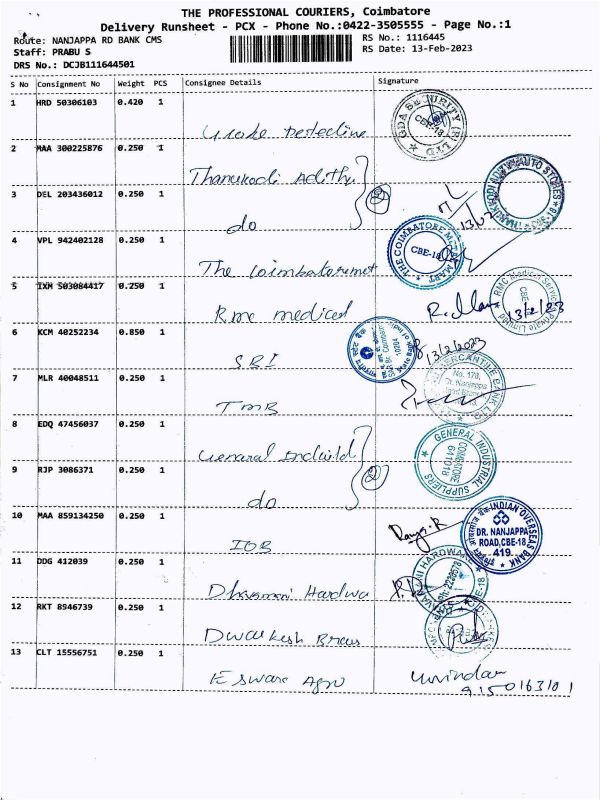 THE PROFESSIONAL COURIERS, Coimbatore
Delivery Runsheet - PCX - Phone No.:0422-3505555 - Page No.:1
Route: NANJAPPA RD BANK CMS
RS No.: 1116445
Staff: PRABU S
RS Date: 13-Feb-2023
DRS No.: DCJB111644501
S No Consignment No Weight PCS Consignee Details Signature
1 HRD 50306103 0.420 1
CBE-18
2 MAA 300225876 0.250 1
3 DEL 203436012 0.250 1
2
do
4 VPL 942402128 0.250 1
THE COIMBATORE METAL MART
CBE-18
The Coimbatoremet
5 IXM 503084417 0.250 1
RMC Medical Services Private Limited
CBE
13/2/23
Rmc medical
6 KCM 40252234 0.850 1
10204
13/2/2023
SBI
7 MLR 40048511 0.250 1
MERCANTILE BANK LTD
No. 178,
Dr. Nanjappa
TMB
8 EDQ 47456037 0.250 1
GENERAL INDUSTRIAL SUPPLIERS
COIMBATORE
641018
9 RJP 3086371 0.250 1
2
do
10 MAA 859134250 0.250 1
INDIAN OVERSEAS BANK
DR. NANJAPPA
ROAD,CBE-18
419.
IOB
11 DDG 412039 0.250 1
HARDWARE
12 RKT 8946739 0.250 1
13 CLT 15556751 0.250 1
Eswari Agro
9150163101